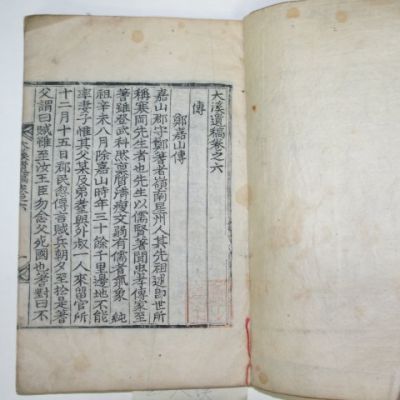 大溪遺稿卷之六
傳
鄭嘉山傳
嘉山郡守鄭蓍者嶺南星州人其先祖逑卽世所
稱寒岡先生者也先生以儒賢著聞忠孝傳家至
蓍雖登武科然資清瘦文弱有儒者氣象 純
祖辛未八月除嘉山時年三十餘千里邊地不能
率妻子惟其父某及弟耆與外叔一人來留官所
十二月十五日郡民忽傳言賊兵朝夕至於是蓍
父謂曰賊惟至汝王臣勿念父死國也蓍對曰不
大溪遺稿卷之六